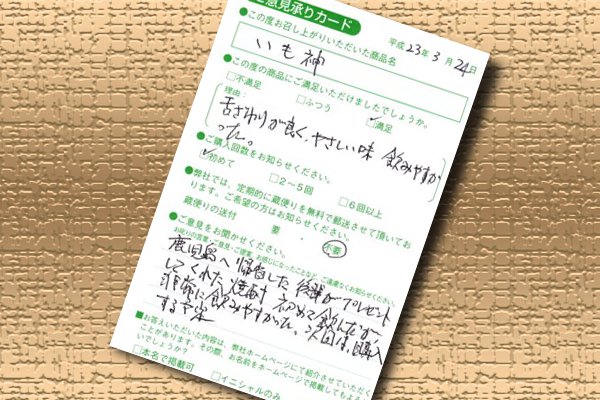 ご意見承りカード
●この度お召し上がりいただいた商品名 平成23年3月24日
いも神
●この度の商品にご満足いただけましたでしょうか。
□不満足 □ふつう ☑満足
理由:
舌ざわりが良く、やさしい味 飲みやすか
った。
●ご購入回数をお知らせください。
☑初めて □2～5回 □6回以上
●弊社では、定期的に蔵便りを無料で郵送させて頂いてお
ります。ご希望の方はお知らせください。
蔵便りの送付 要 ・ 不要
●ご意見をお聞かせください。
お叱りの言葉・ご意見・ご提案、お感じになったことなど、ご遠慮なくお知らせください。
鹿児島へ帰省した後輩がプレゼント
してくれた焼酎 初めて飲んだが、
非常に飲みやすかった。次回は、購入
する予定
■お答えいただいた内容は、弊社ホームページにて紹介させていただく
ことがあります。その際、お名前をホームページで掲載してもよろ
いでしょうか?
□本名で掲載可 □イニシャルのみ